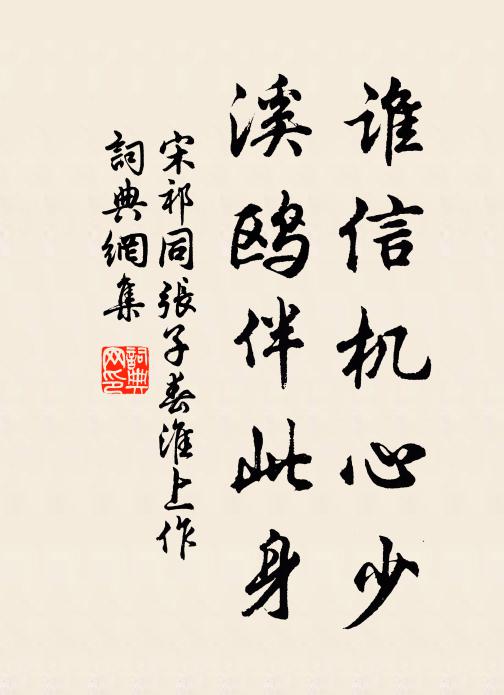 谁信机心少
溪鸥伴此身
宋祁同張子春淮上作
詞典網集
詞典网印